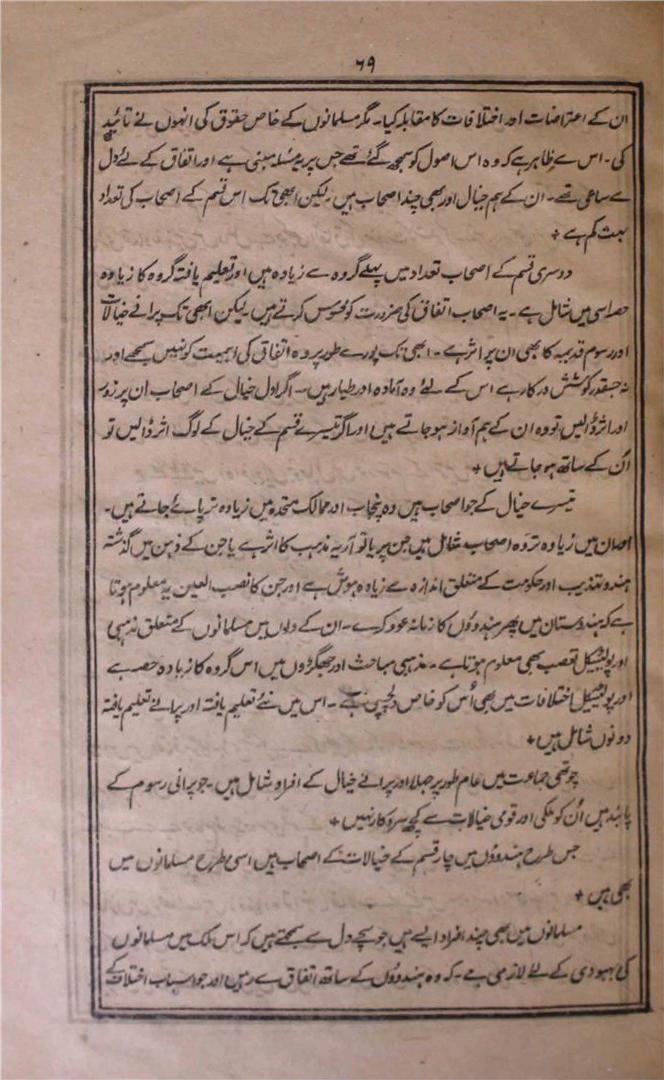 ۶۹
ان کے اعتراضات اور اختلافات کا مقابلہ کیا۔ مگر مسلمانوں کے خاص حقوق کی انہوں نے تائید
کی۔ اس سے ظاہر ہے کہ وہ اس اصول کو سمجھ گئے تھے جس پر یہ مسئلہ مبنی ہے اور اتفاق کے لئے دل
سے ساعی تھے۔ ان کے ہم خیال اور بھی چند اصحاب ہیں۔ لیکن ابھی تک اس قسم کے اصحاب کی تعداد
بہت کم ہے +
دوسری قسم کے اصحاب تعداد میں پہلے گروہ سے زیادہ ہیں اور تعلیم یافتہ گروہ کا زیادہ
حصہ اسی میں شامل ہے۔ یہ اصحاب اتفاق کی ضرورت کو محسوس کرتے ہیں۔ لیکن ابھی تک پرانے خیالات
اور رسوم قدیمہ کا بھی ان پر اثر ہے۔ ابھی تک پورے طور پر وہ اتفاق کی اہمیت کو نہیں سمجھے اور
نہ جسقدر کوشش درکار ہے اس کے لئے وہ آمادہ اور طیار ہیں۔ اگر اول خیال کے اصحاب ان پر زور
اور اثر ڈالیں تو وہ ان کے ہم آواز ہو جاتے ہیں اور اگر تیسرے قسم کے خیال کے لوگ اثر ڈالیں تو
اُن کے ساتھ ہو جاتے ہیں +
تیسرے خیال کے جو اصحاب ہیں وہ پنجاب اور ممالک متحدہ میں زیادہ تر پائے جاتے ہیں۔
اور ان میں زیادہ تر وہ اصحاب شامل ہیں جن پر یا تو آریہ مذہب کا اثر ہے یا جن کے ذہن میں گذشتہ
ہندو تہذیب اور حکومت کے متعلق اندازہ سے زیادہ ہوش ہے اور جن کا نصب العین یہ معلوم ہوتا
ہے کہ ہندوستان میں پھر ہندوؤں کا زمانہ عود کرے۔ ان کے دلوں میں مسلمانوں کے متعلق مذہبی
اور پولیٹیکل تعصب بھی معلوم ہوتا ہے۔ مذہبی مباحث اور جھگڑوں میں اس گروہ کا زیادہ حصہ ہے
اور پولیٹیکل اختلافات میں بھی اُس کو خاص دلچسپی ہے۔ اس میں نئے تعلیم یافتہ اور پرانے تعلیم یافتہ
دونوں شامل ہیں +
چوتھی جماعت میں عام طور پر جہلا اور پرانے خیال کے افراد شامل ہیں۔ جو پرانی رسوم کے
پابند ہیں اُن کو ملکی اور قومی خیالات سے کچھ سروکار نہیں +
جس طرح ہندوؤں میں چار قسم کے خیالات کے اصحاب ہیں اسی طرح مسلمانوں میں
بھی ہیں +
مسلمانوں میں بھی چند افراد ایسے ہیں جو سچے دل سے سمجھتے ہیں کہ اس ملک میں مسلمانوں
کی بہبودی کے لئے لازمی ہے۔ کہ وہ ہندوؤں کے ساتھ اتفاق سے رہیں اور جو اسباب اختلاف کے